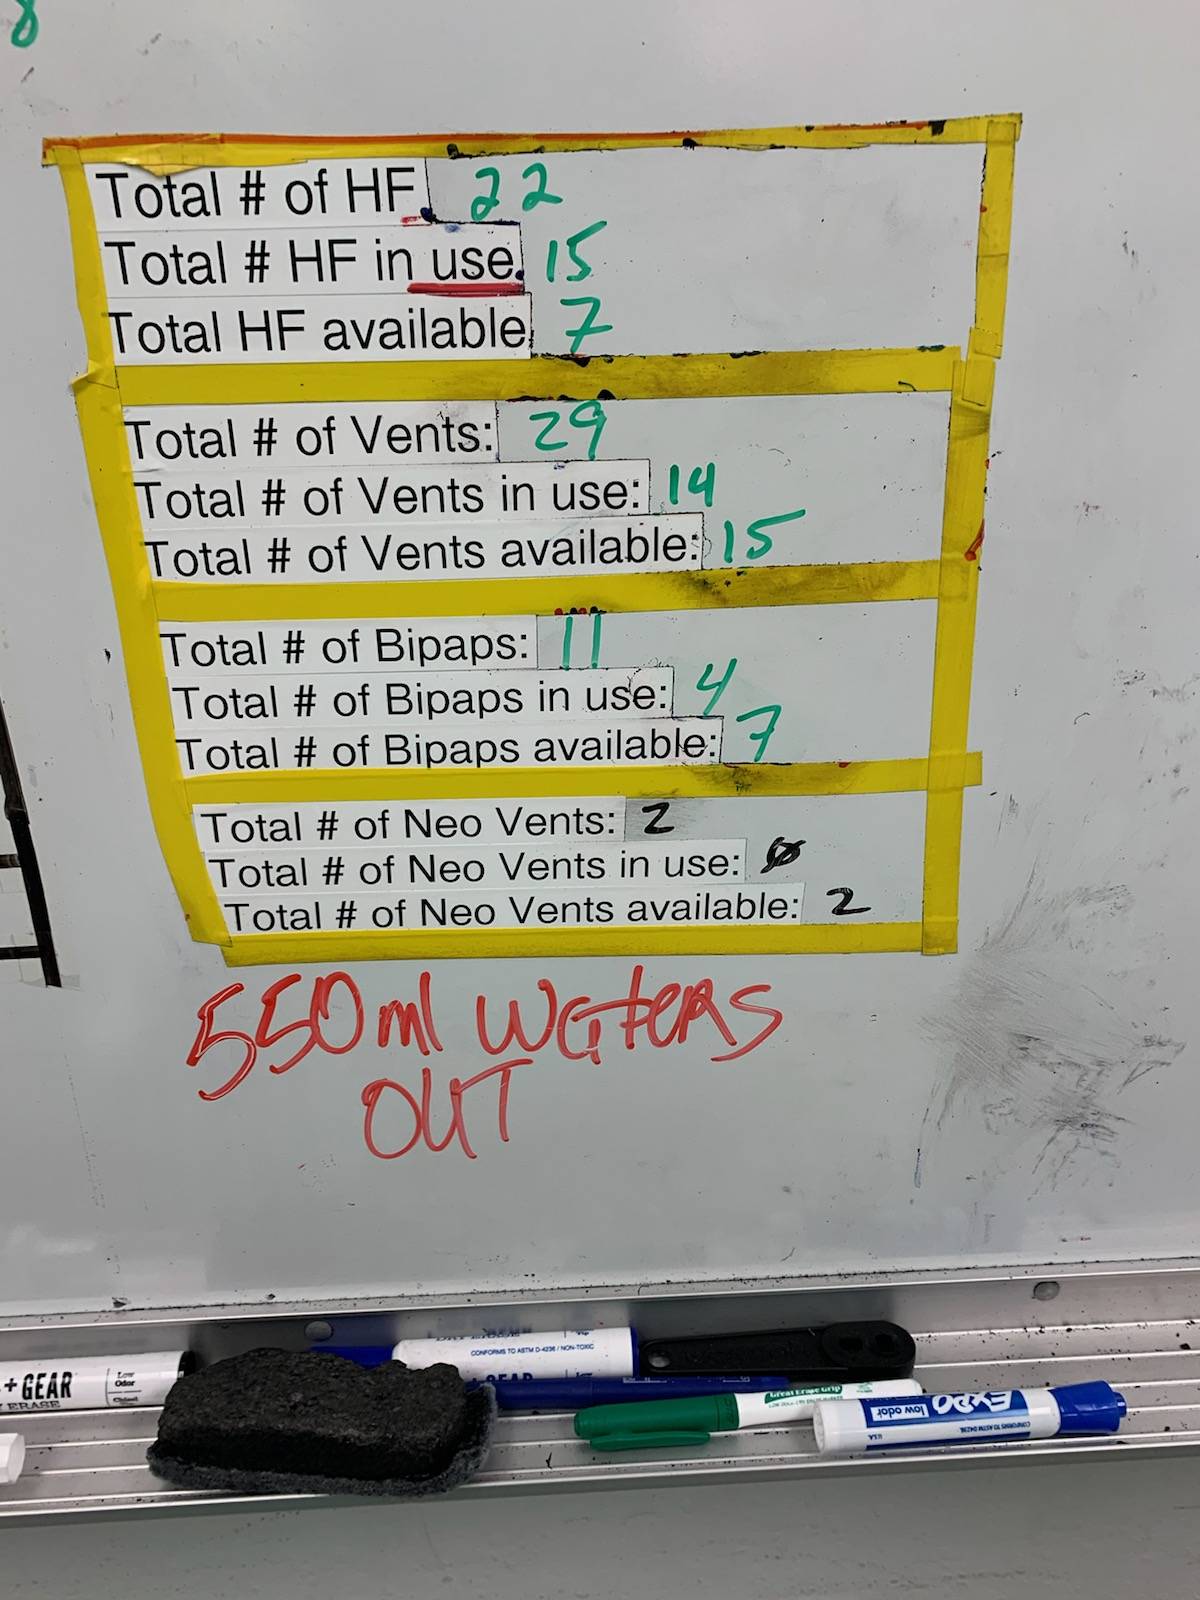 8
Total # of HF. 22
Total # HF in use. 15
Total HF available 7
Total # of Vents: 29
Total # of Vents in use: 14
Total # of Vents available: 15
Total # of Bipaps: 11
Total # of Bipaps in use: 4
Total # of Bipaps available: 7
Total # of Neo Vents: 2
Total # of Neo Vents in use: 0
Total # of Neo Vents available: 2
550ml Waters
OUT
CONFORMS TO ASTM D-4236 / NON-TOXIC
+ GEAR
Low
Odor
Y ERASE
Chisel
GEAR
Great Erase Grip
EXPO
low odor
CONFORMS TO ASTM D4236
U.S.A.